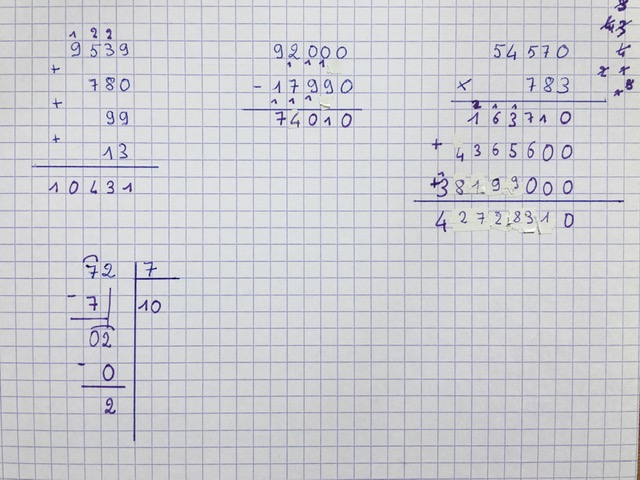 1 2 2
9539
+
780
+
99
+
13
10431
92000
1 1 1
- 17990
1 1 1
74010
54570
x 783
2 1 1
163710
+ 4365600
+ 38199000
42728310
72 7
- 7 10
02
- 0
2